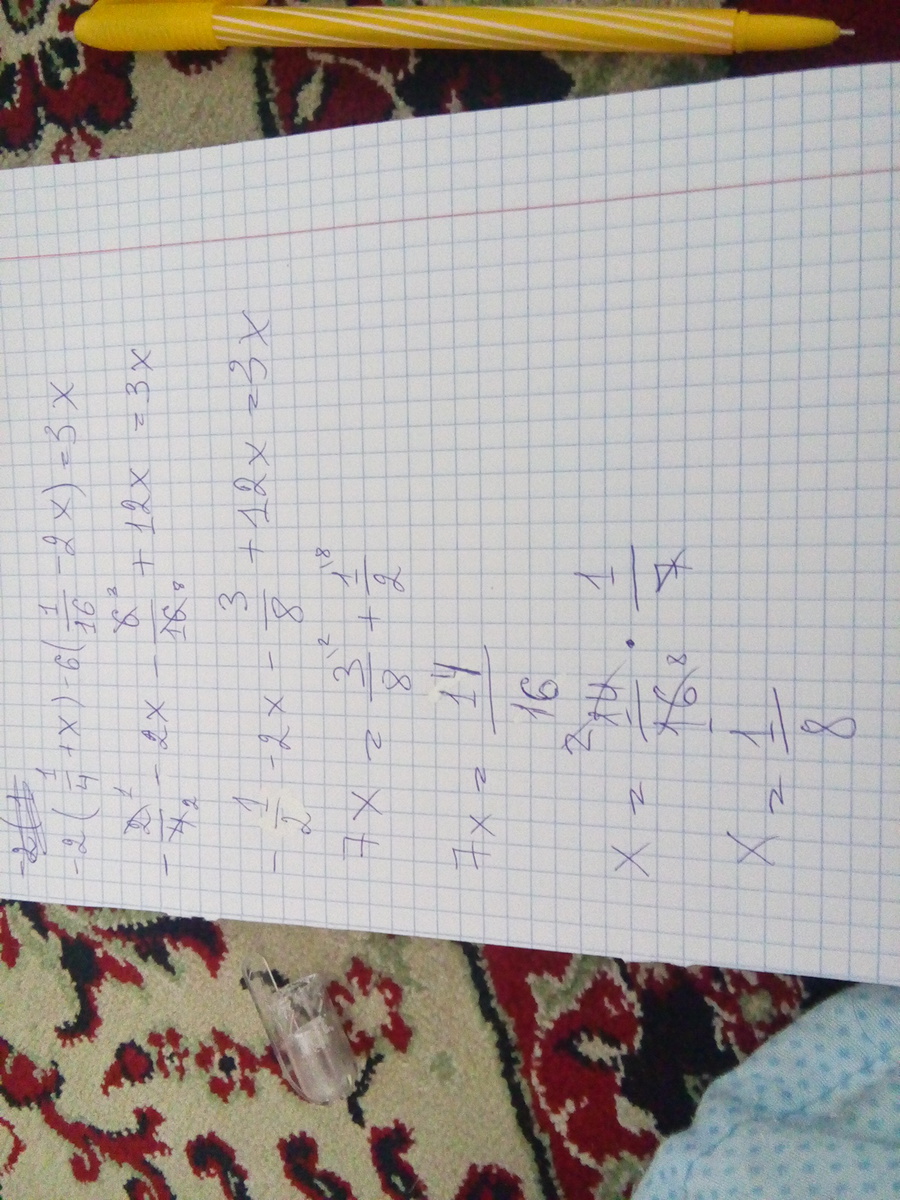 -2(1/4 + x) - 6(1/16 - 2x) = 3x
- 2/4 - 2x - 6/16 + 12x = 3x
- 1/2 - 2x - 3/8 + 12x = 3x
7x = 3/8 + 1/2
7x = 14/16
x = 14/16 · 1/7
x = 1/8